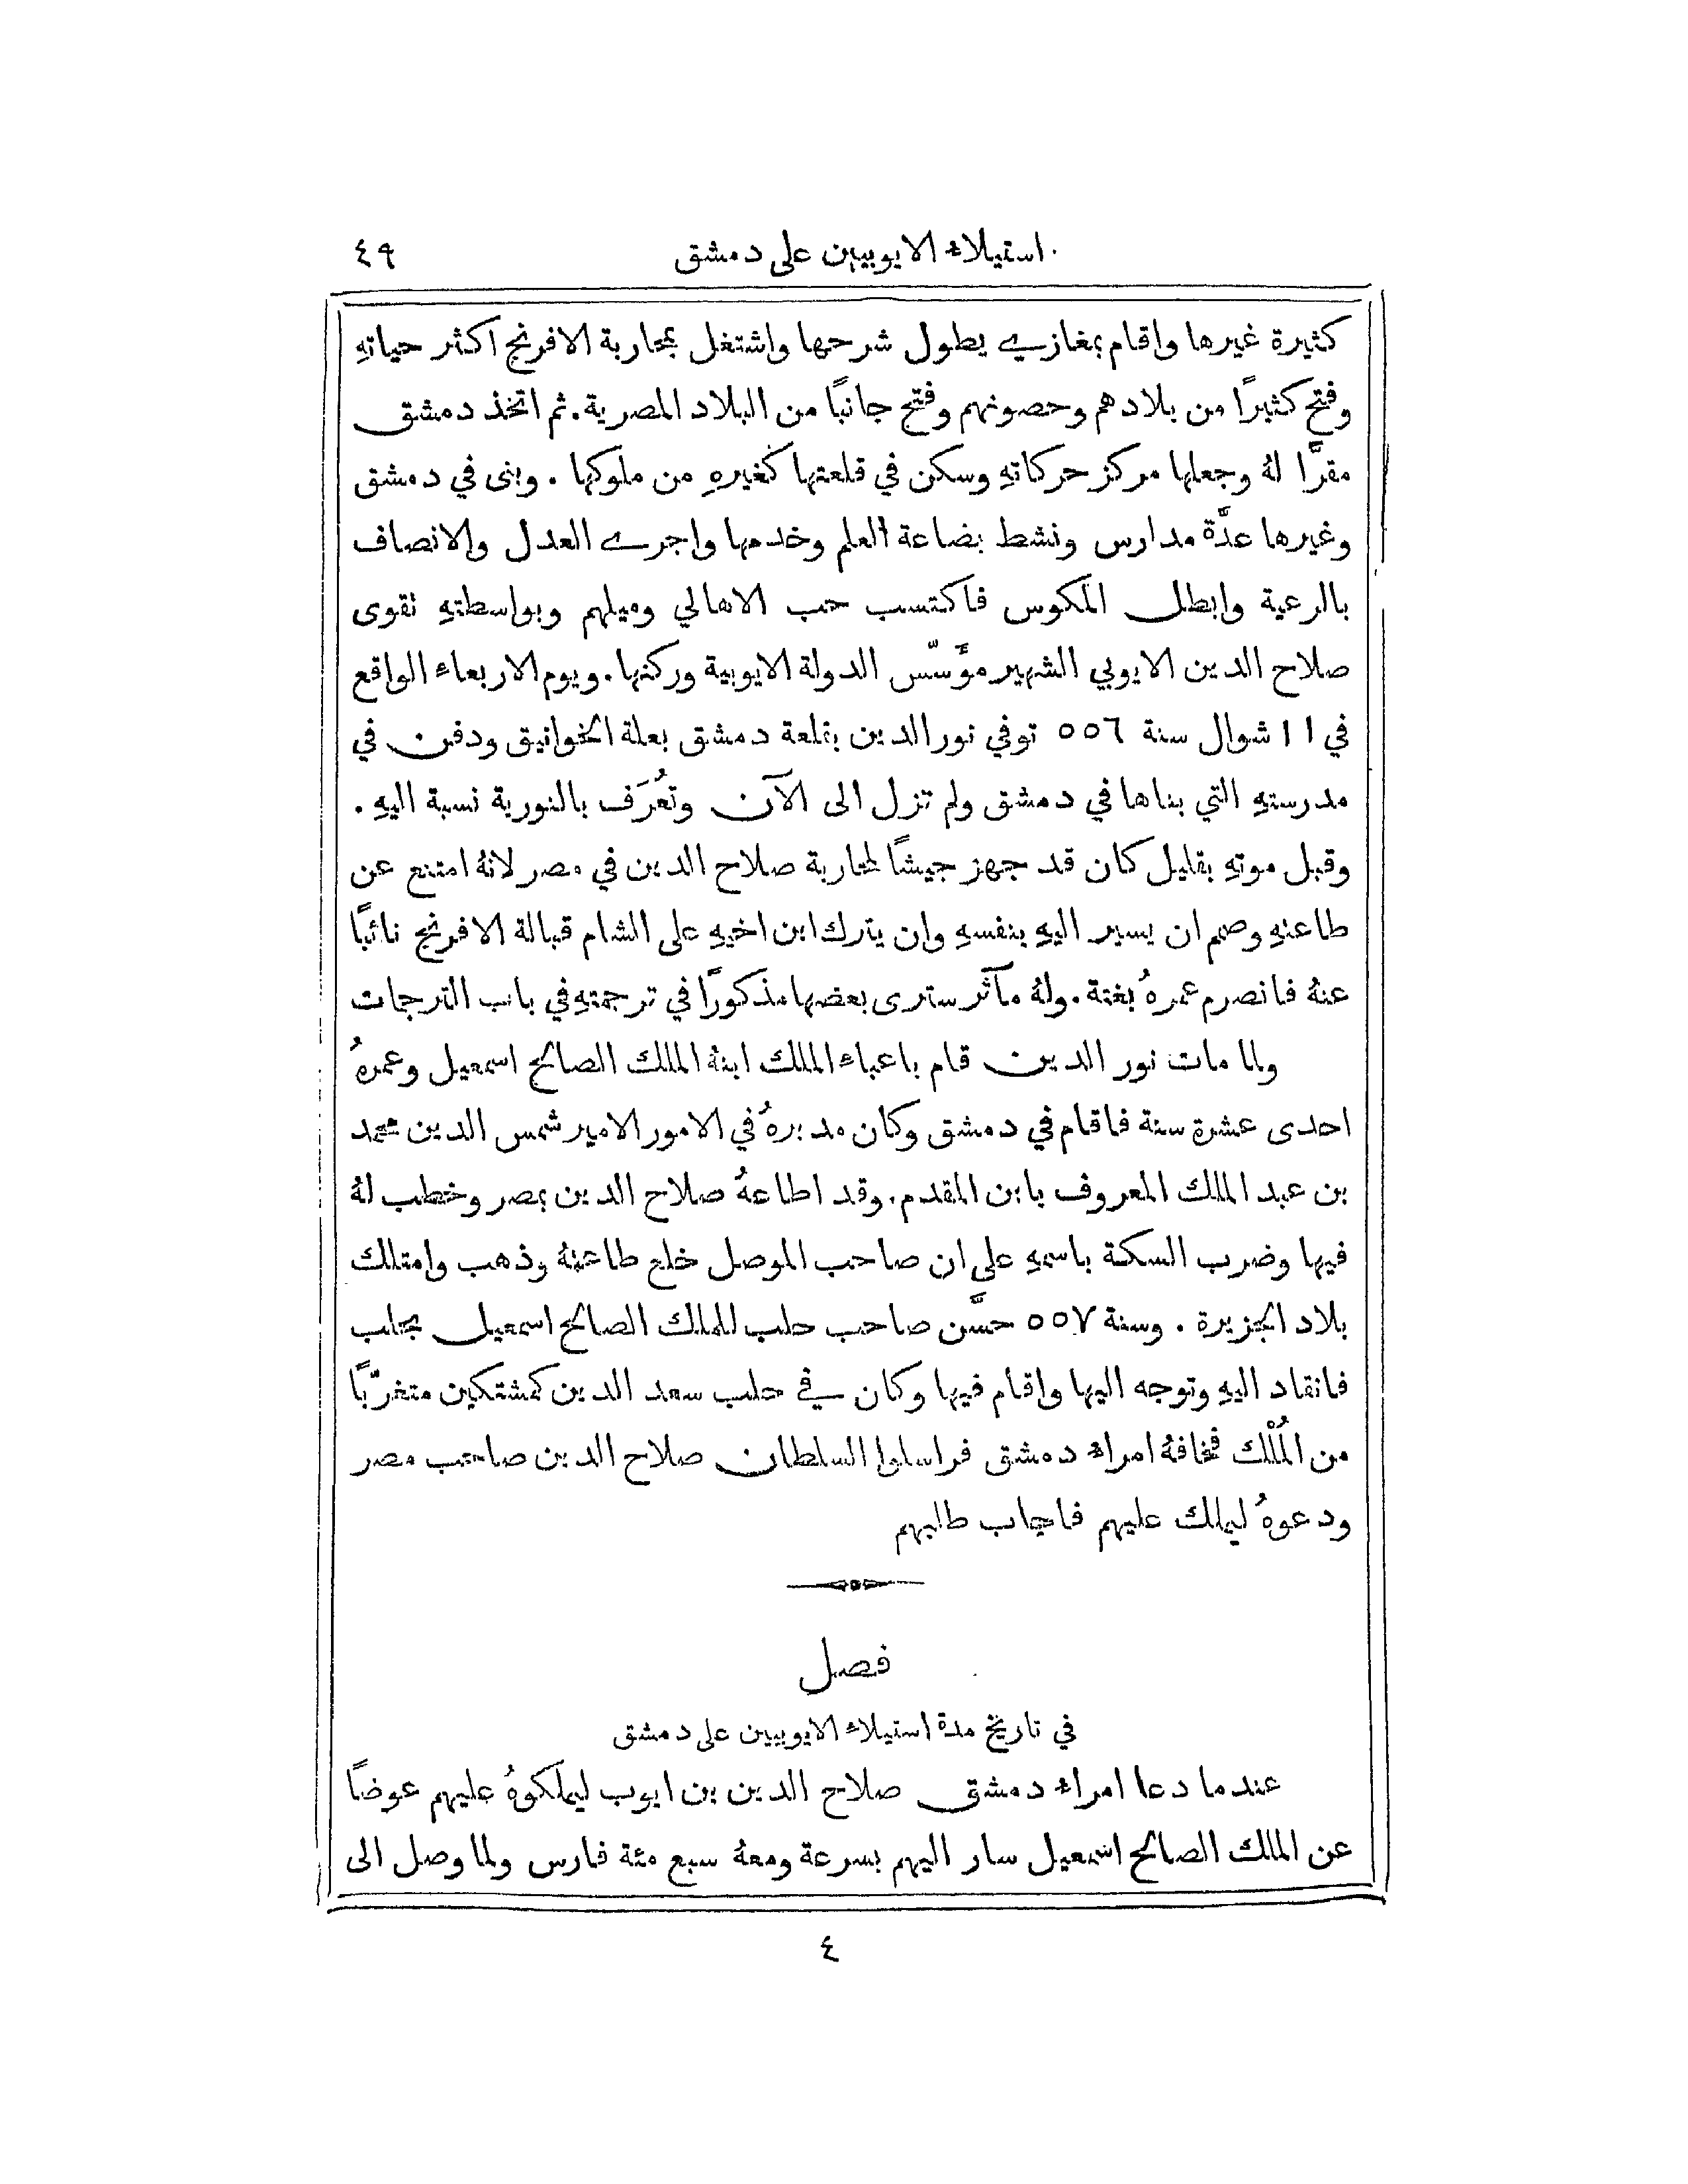 استيلاء الايوبيين على دمشق ٤٩
كثيرة غيرها واقام بمغازي يطول شرحها واشتغل بمحاربة الافرنج اكثر حياتهِ
وفتح كثيرًا من بلادهم وحصونهم وفتح جانبًا من البلاد المصرية. ثم اتخذ دمشق
مقرًّا لهُ وجعلها مركز حركاتهِ وسكن في قلعتها كغيرهِ من ملوكها . وبنى في دمشق
وغيرها عدَّة مدارس ونشط بضاعة العلم وخدمها واجرى العدل والانصاف
بالرعية وابطل المكوس فاكتسب حب الاهالي وميلهم وبواسطتهِ تقوى
صلاح الدين الايوبي الشهير مؤَسّس الدولة الايوبية وركنها. ويوم الاربعاء الواقع
في ١١ شوال سنة ٥٥٦ توفي نور الدين بقلعة دمشق بعلة الخوانيق ودفن في
مدرستهِ التي بناها في دمشق ولم تزل الى الآن وتُعرَف بالنورية نسبة اليهِ .
وقبل موتهِ بقليل كان قد جهز جيشًا لمحاربة صلاح الدين في مصر لانهُ امتنع عن
طاعتهِ وصمم ان يسير اليهِ بنفسهِ وان يترك ابن اخيهِ على الشام قبالة الافرنج نائبًا
عنهُ فانصرم عمرهُ بغتة. ولهُ مآثر سترى بعضها مذكورًا في ترجمتهِ في باب الترجمات
ولما مات نور الدين قام باعباء الملك ابنهُ الملك الصالح اسمعيل وعمرهُ
احدى عشرة سنة فاقام في دمشق وكان مدبرهُ في الامور الامير شمس الدين محمد
بن عبد الملك المعروف بابن المقدم. وقد اطاعهُ صلاح الدين بمصر وخطب لهُ
فيها وضرب السكة باسمهِ على ان صاحب الموصل خلع طاعتهُ وذهب وامتلك
بلاد الجزيرة . وسنة ٥٥٧ حسَّن صاحب حلب للملك الصالح اسمعيل بحلب
فانقاد اليهِ وتوجه اليها واقام فيها وكان في حلب سعد الدين كمشتكين متقرّبًا
من المُلْك فخافهُ امراء دمشق فراسلوا السلطان صلاح الدين صاحب مصر
ودعوهُ ليملك عليهم فاجاب طلبهم
فصل
في تاريخ مدة استيلاء الايوبيين على دمشق
عندما دعا امراء دمشق صلاح الدين بن ايوب ليملكوهُ عليهم عوضًا
عن الملك الصالح اسمعيل سار اليهم بسرعة ومعهُ سبع مئة فارس ولما وصل الى
٤